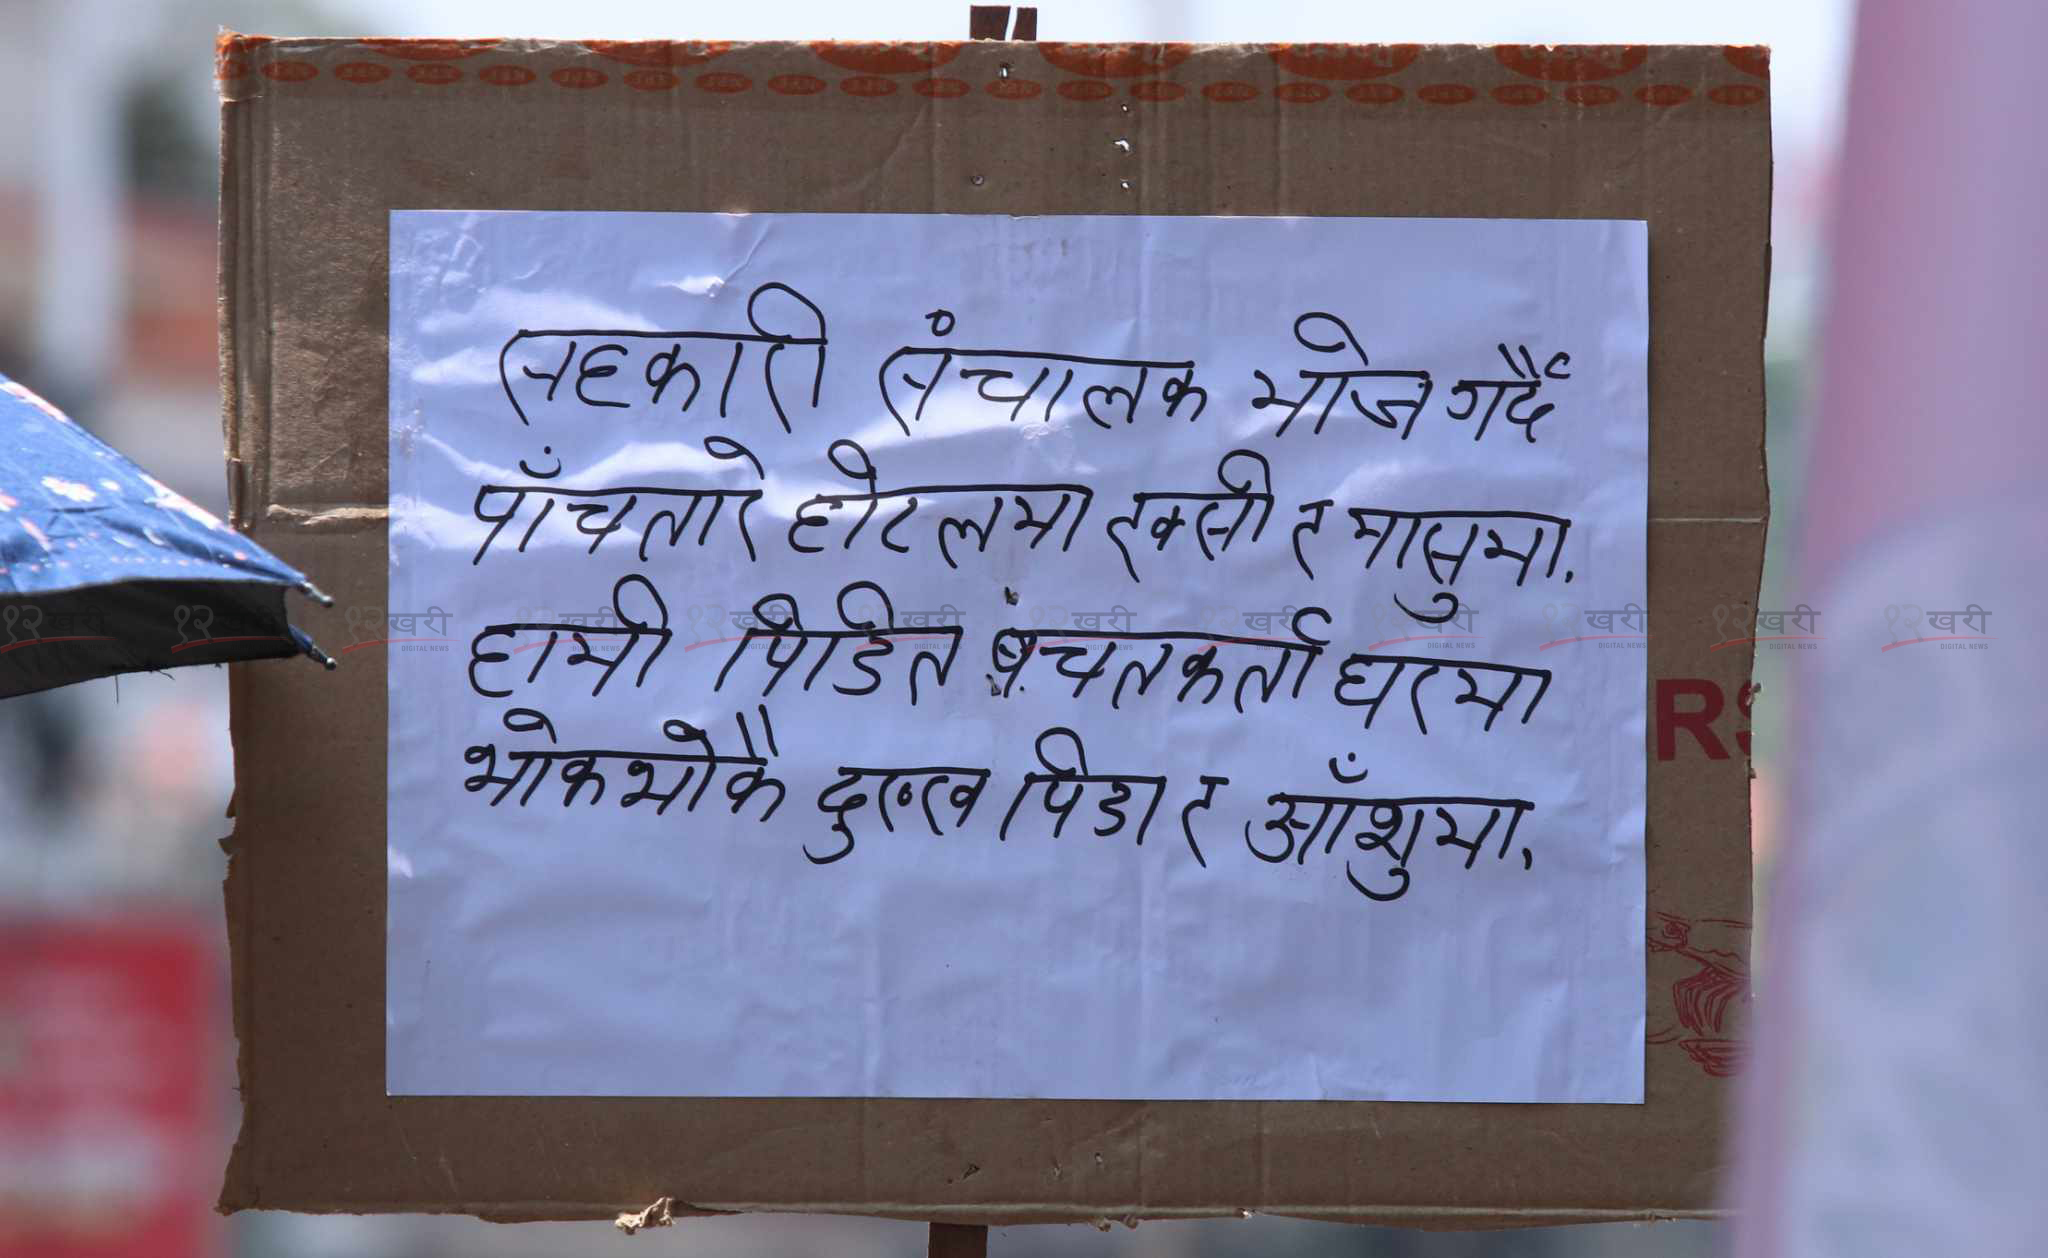 सहकारी संचालक भोज गर्दै
पाँचतारे होटलमा रक्सी र मासुमा.
हामी पिडित बचतकर्ता घरमा
भोकभोकै दुःख पिडा र आँशुमा.
RS
१२खरी
DIGITAL NEWS